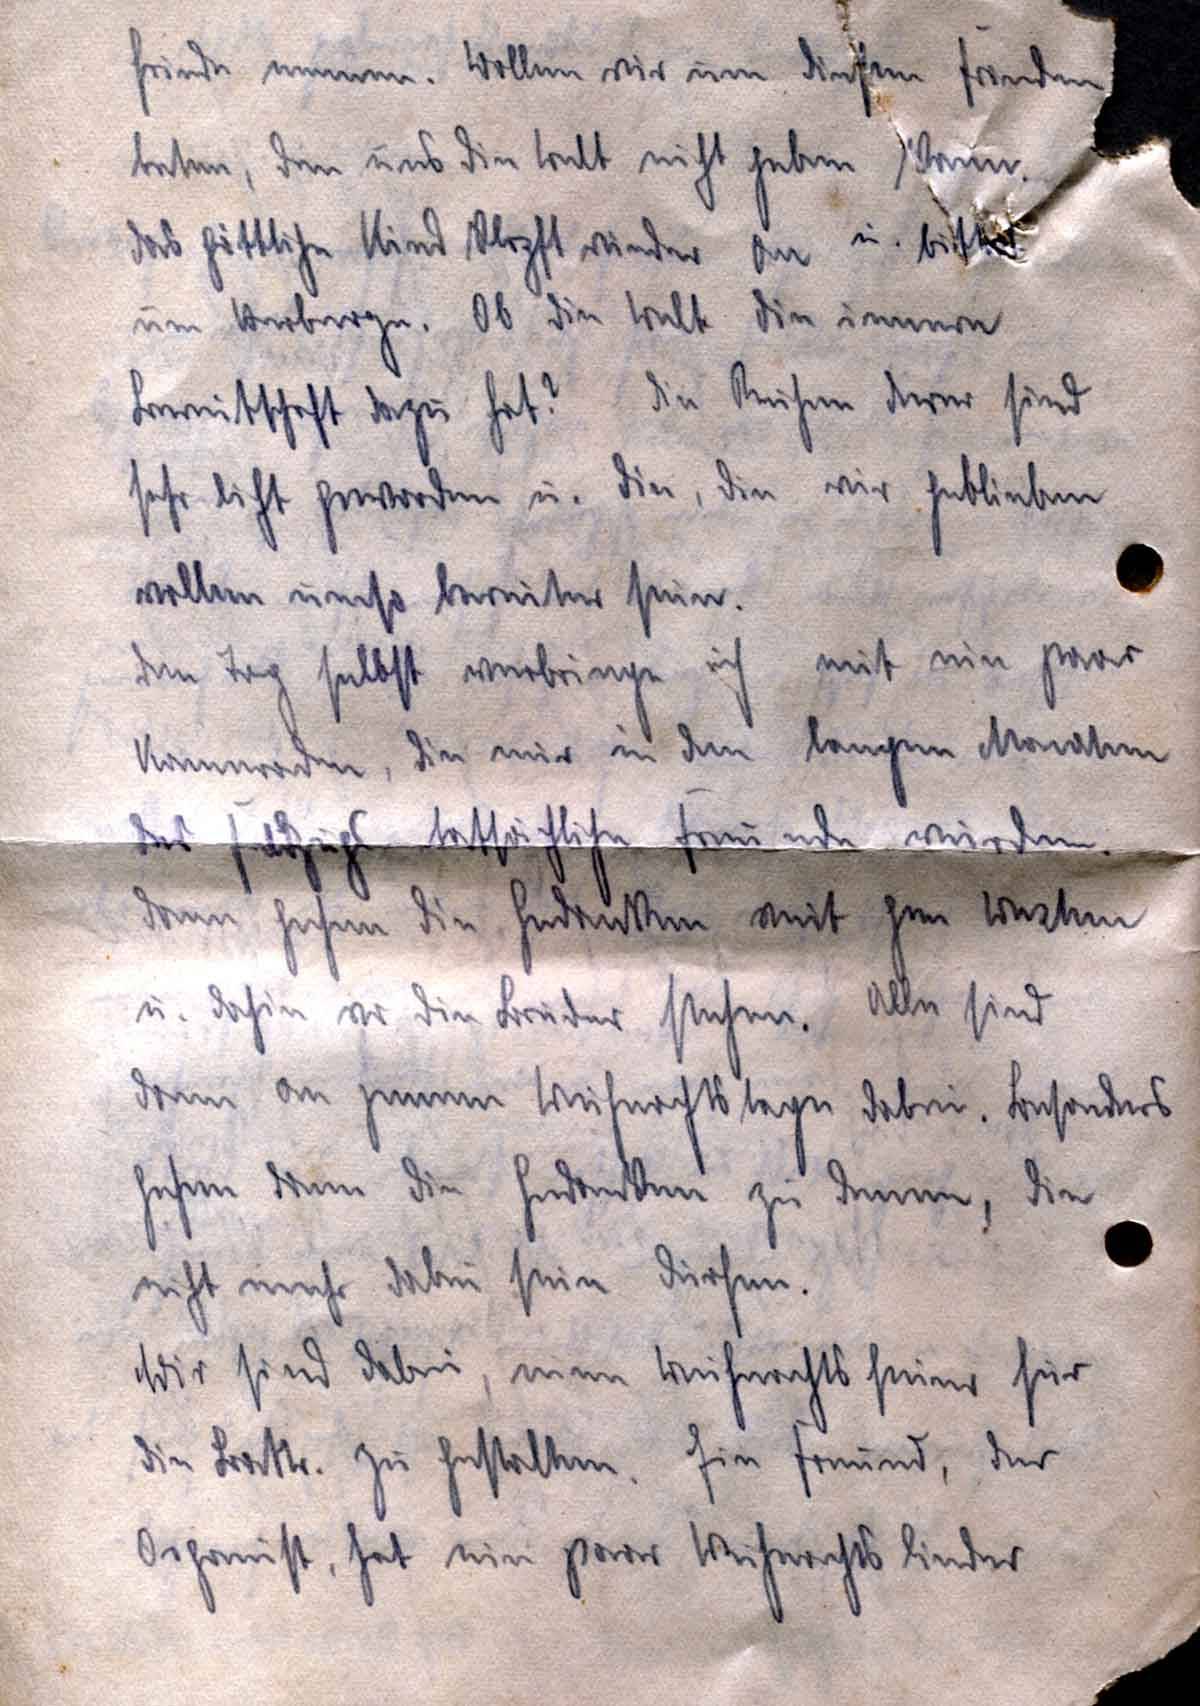 Friede nennen. Wollen wir um diesen Frieden
beten, den uns die Welt nicht geben kann.
das göttliche Kind klopft wieder an u. bittet
um Herberge. Ob die Welt die innere
Bereitschaft dazu hat? die Reihen derer sind
sehr licht geworden u. die, die wir geblieben
wollen umso bereiter sein.
den Tag selbst verbringe ich mit ein paar
Kameraden, die mir in den langen Monaten
des Feldzugs tatsächliche Freunde wurden.
dann gehen die Gedanken weit gen Westen
u. dahin wo die Brüder stehen. Alle sind
dann an jenem Weihnachtstage dabei. Besonders
gehen dann die Gedanken zu denen, die
nicht mehr dabei sein dürfen.
Wir sind dabei, eine Weihnachtsfeier für
die Battr. zu gestalten. Ein Freund, der
Organist, hat ein paar Weihnachtslieder